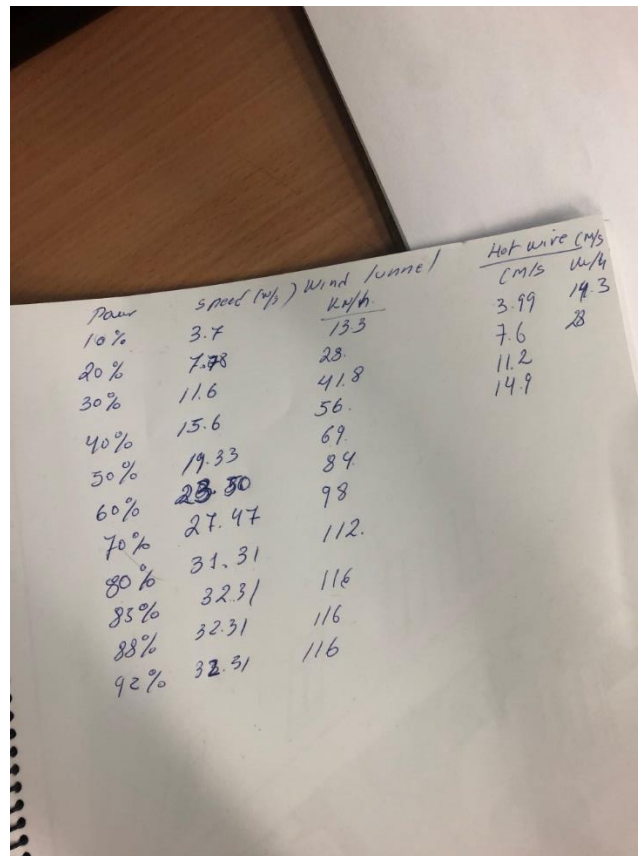 Power speed (m/s) Wind Tunnel Hot wire (m/s
Km/h. (m/s Km/h
10% 3.7 13.3 3.99 14.3
20% 7.78 28. 7.6 28
30% 11.6 41.8 11.2
40% 15.6 56. 14.9
50% 19.33 69.
60% 23.30 84.
70% 27.47 98
80% 31.31 112.
85% 32.31 116
88% 32.31 116
92% 32.31 116